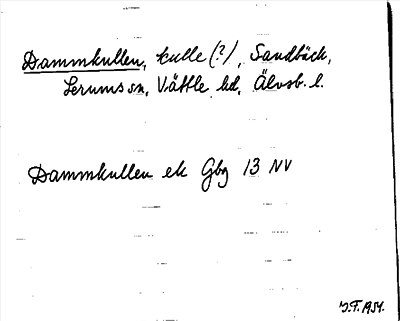 Dammkullen, kulle (?), Sandbäck,
Lerums sn, Vättle hd, Älvsb. l.
Dammkullen ek Gbg 13 NV
J.F. 1951.